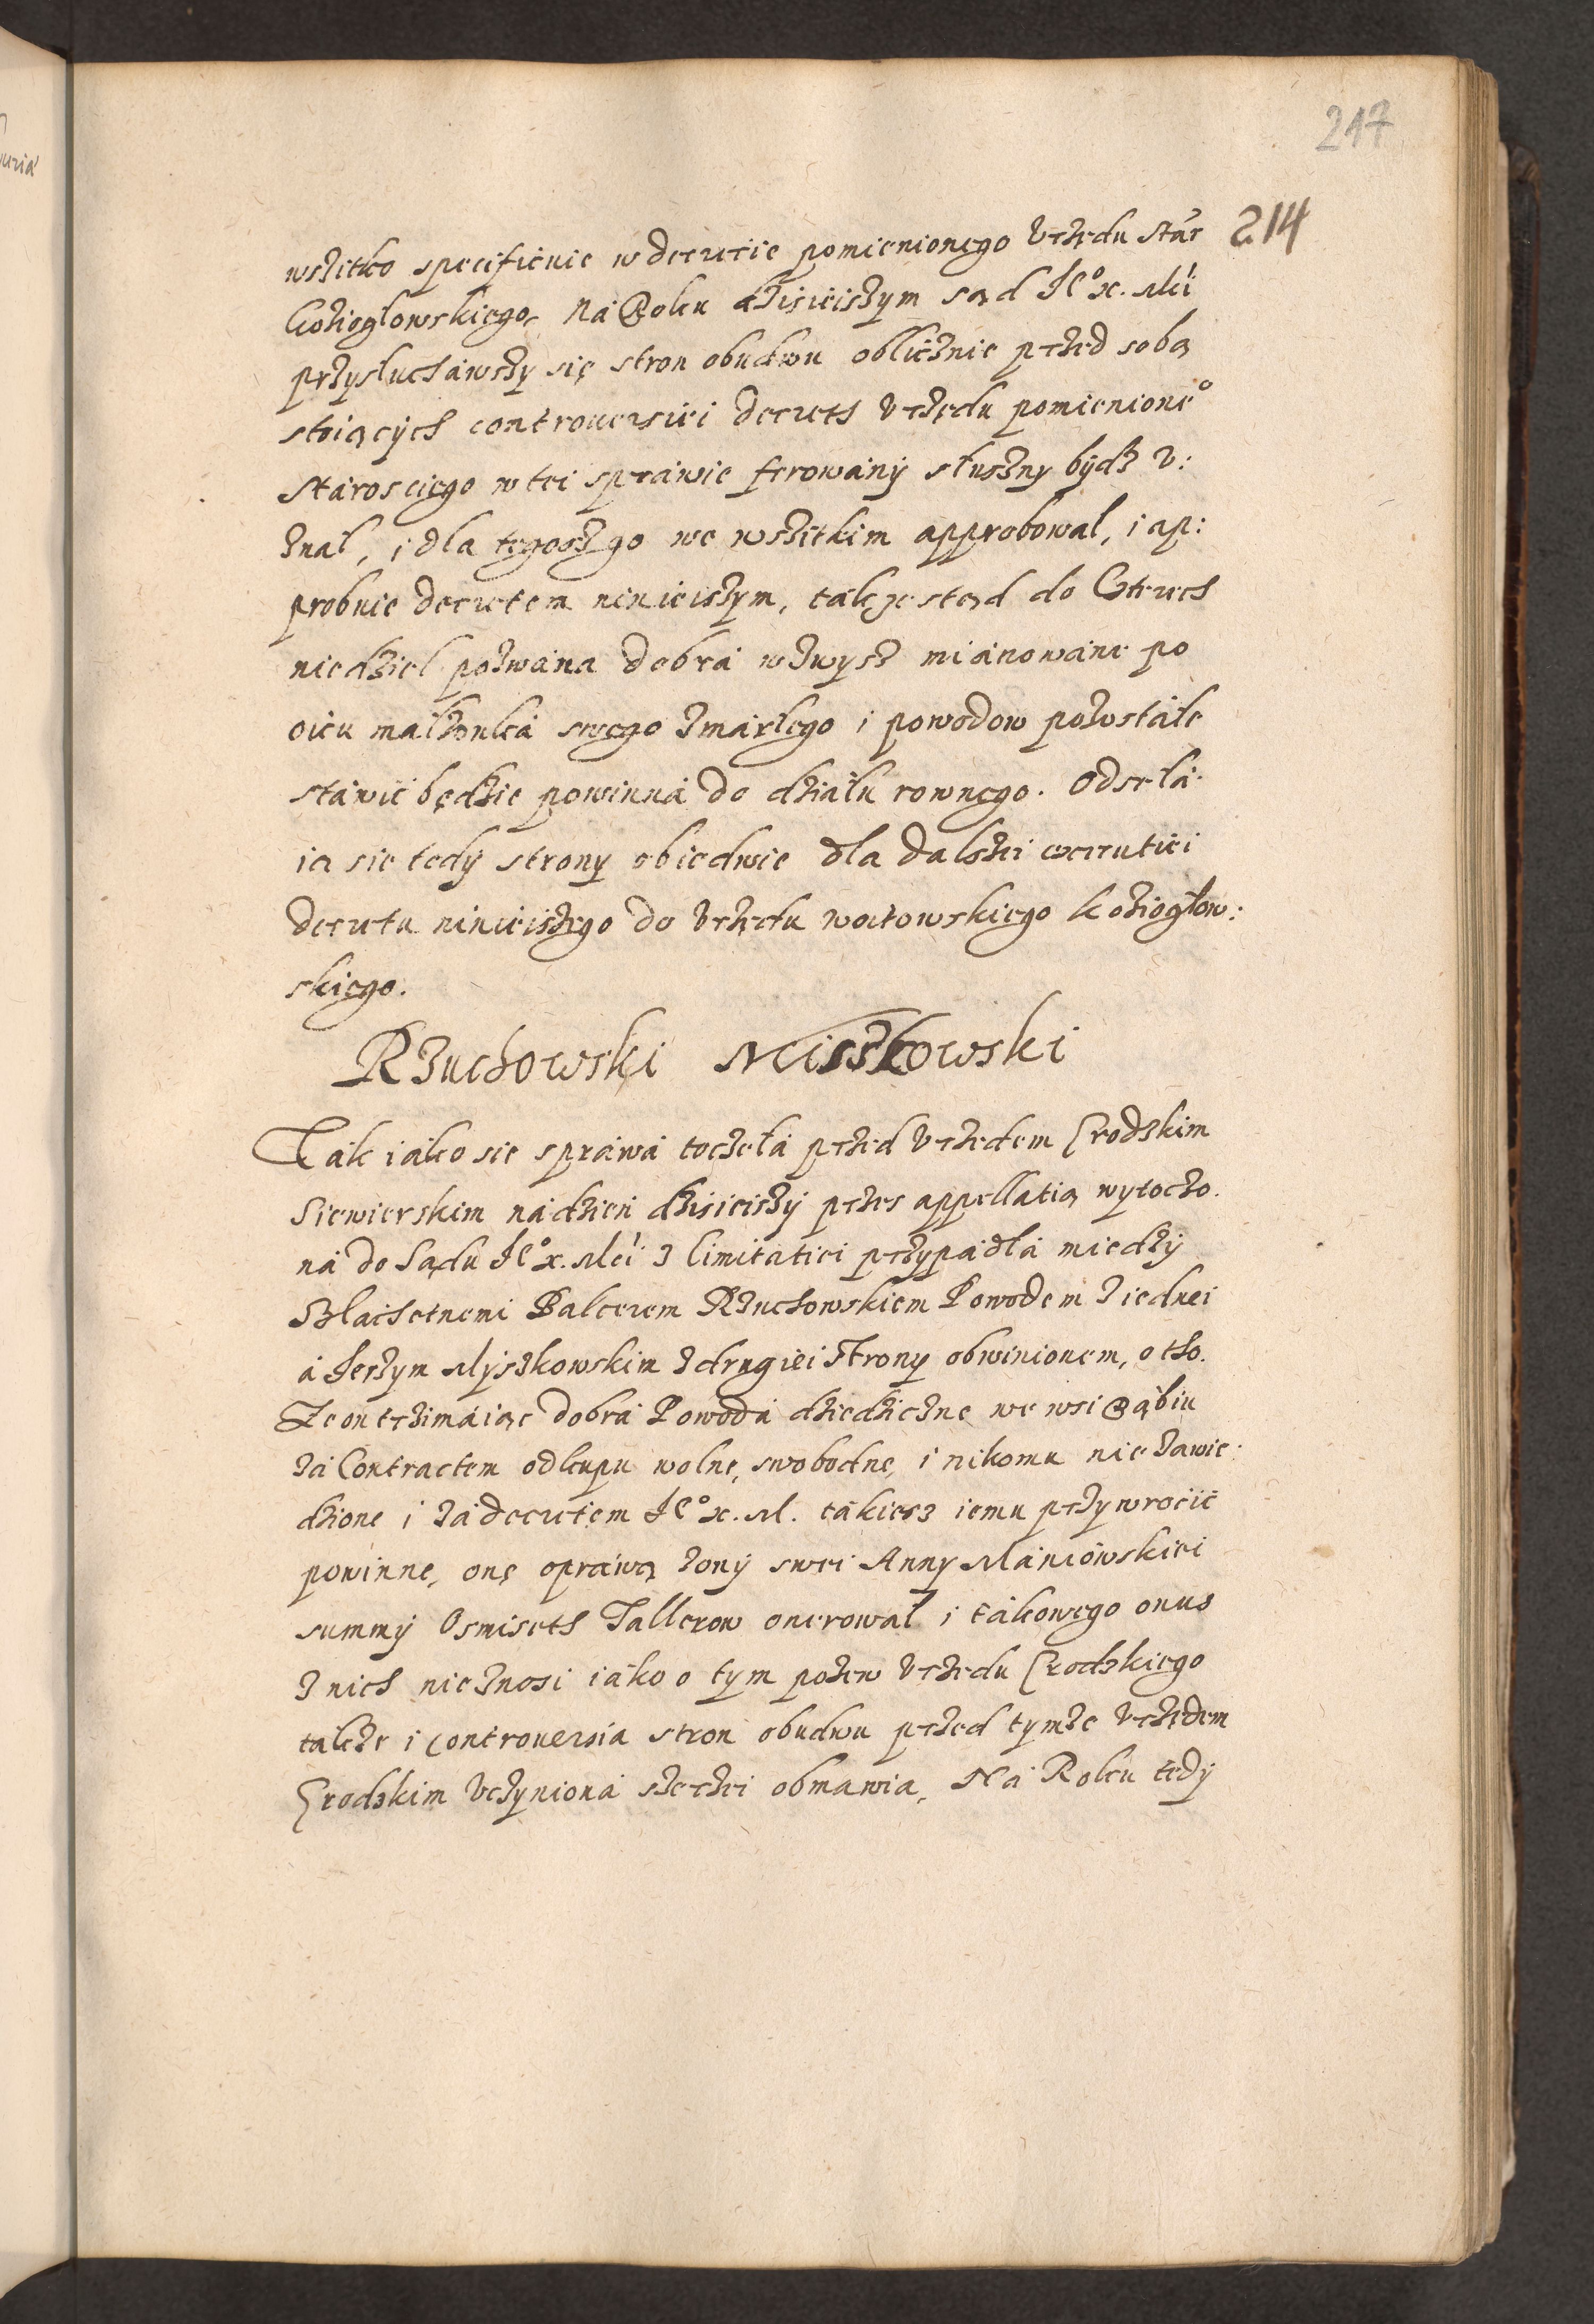 247
214
wszitko specificuie w decrecie pomienionego Vrzędu Star
Koziogłowskiego, Na Roku dzisieiszym sąd Je° x. Mći
przysłuchawszy się stron obudwu oblicznie przed sobą
stoiących controuersiei decreth Vrzędu pomienione°
Starosciego w tei sprawie ferowany słuszny bydz v:
znał, i dla tegosz go we wszitkim approbował, i ap:
probuie decretem ninieiszym, takze stąd do Cterech
niedziel pozwana dobra wzwysz mianowane po
oicu małzonka swego zmarłego i powodow pozostałe
stawić będzie powinna do działu rownego. Odseła
ią sie tedy strony obiedwie dla dalszei exccutiei
decretu ninieiszego do Vrzędu woitowskiego Koziogłow:
skiego.
Rzuchowski Miszkowski
Tak iako sie sprawa toczeła przed Vrzedem Grodzkim
Siewierskim na dzien dzisieiszy przes appellatią wytoczo.
na do Sądu Je° x. Mći z limitatiei przypadła miedzy
Szlachetnemi Balcerem Rzuchowskiem Powodem z iednei
a Jerzym Myszkowskim z drugiei strony obwinionem, o tho.
Ze on trzimaiąc dobra Powoda dziedziczne we wsi Bąbiu
za Contractem odkupu wolne, swobodne, i nikomu nie zawie.
dzione i za decretem Je° x. M. takiesz iemu przywrocić
powinne, onę oprawą zony swei Anny Maniowskiei
summy Osmiseth Tallerow onerował i takowego onus
z nich nie znosi iako o tym pozew Vrzedu Grodzkiego
takze i controuersia stron obudwu przed tymze Vrzędem
Grodzkim Vczyniona szerzei obmawia, Na Roku tedy